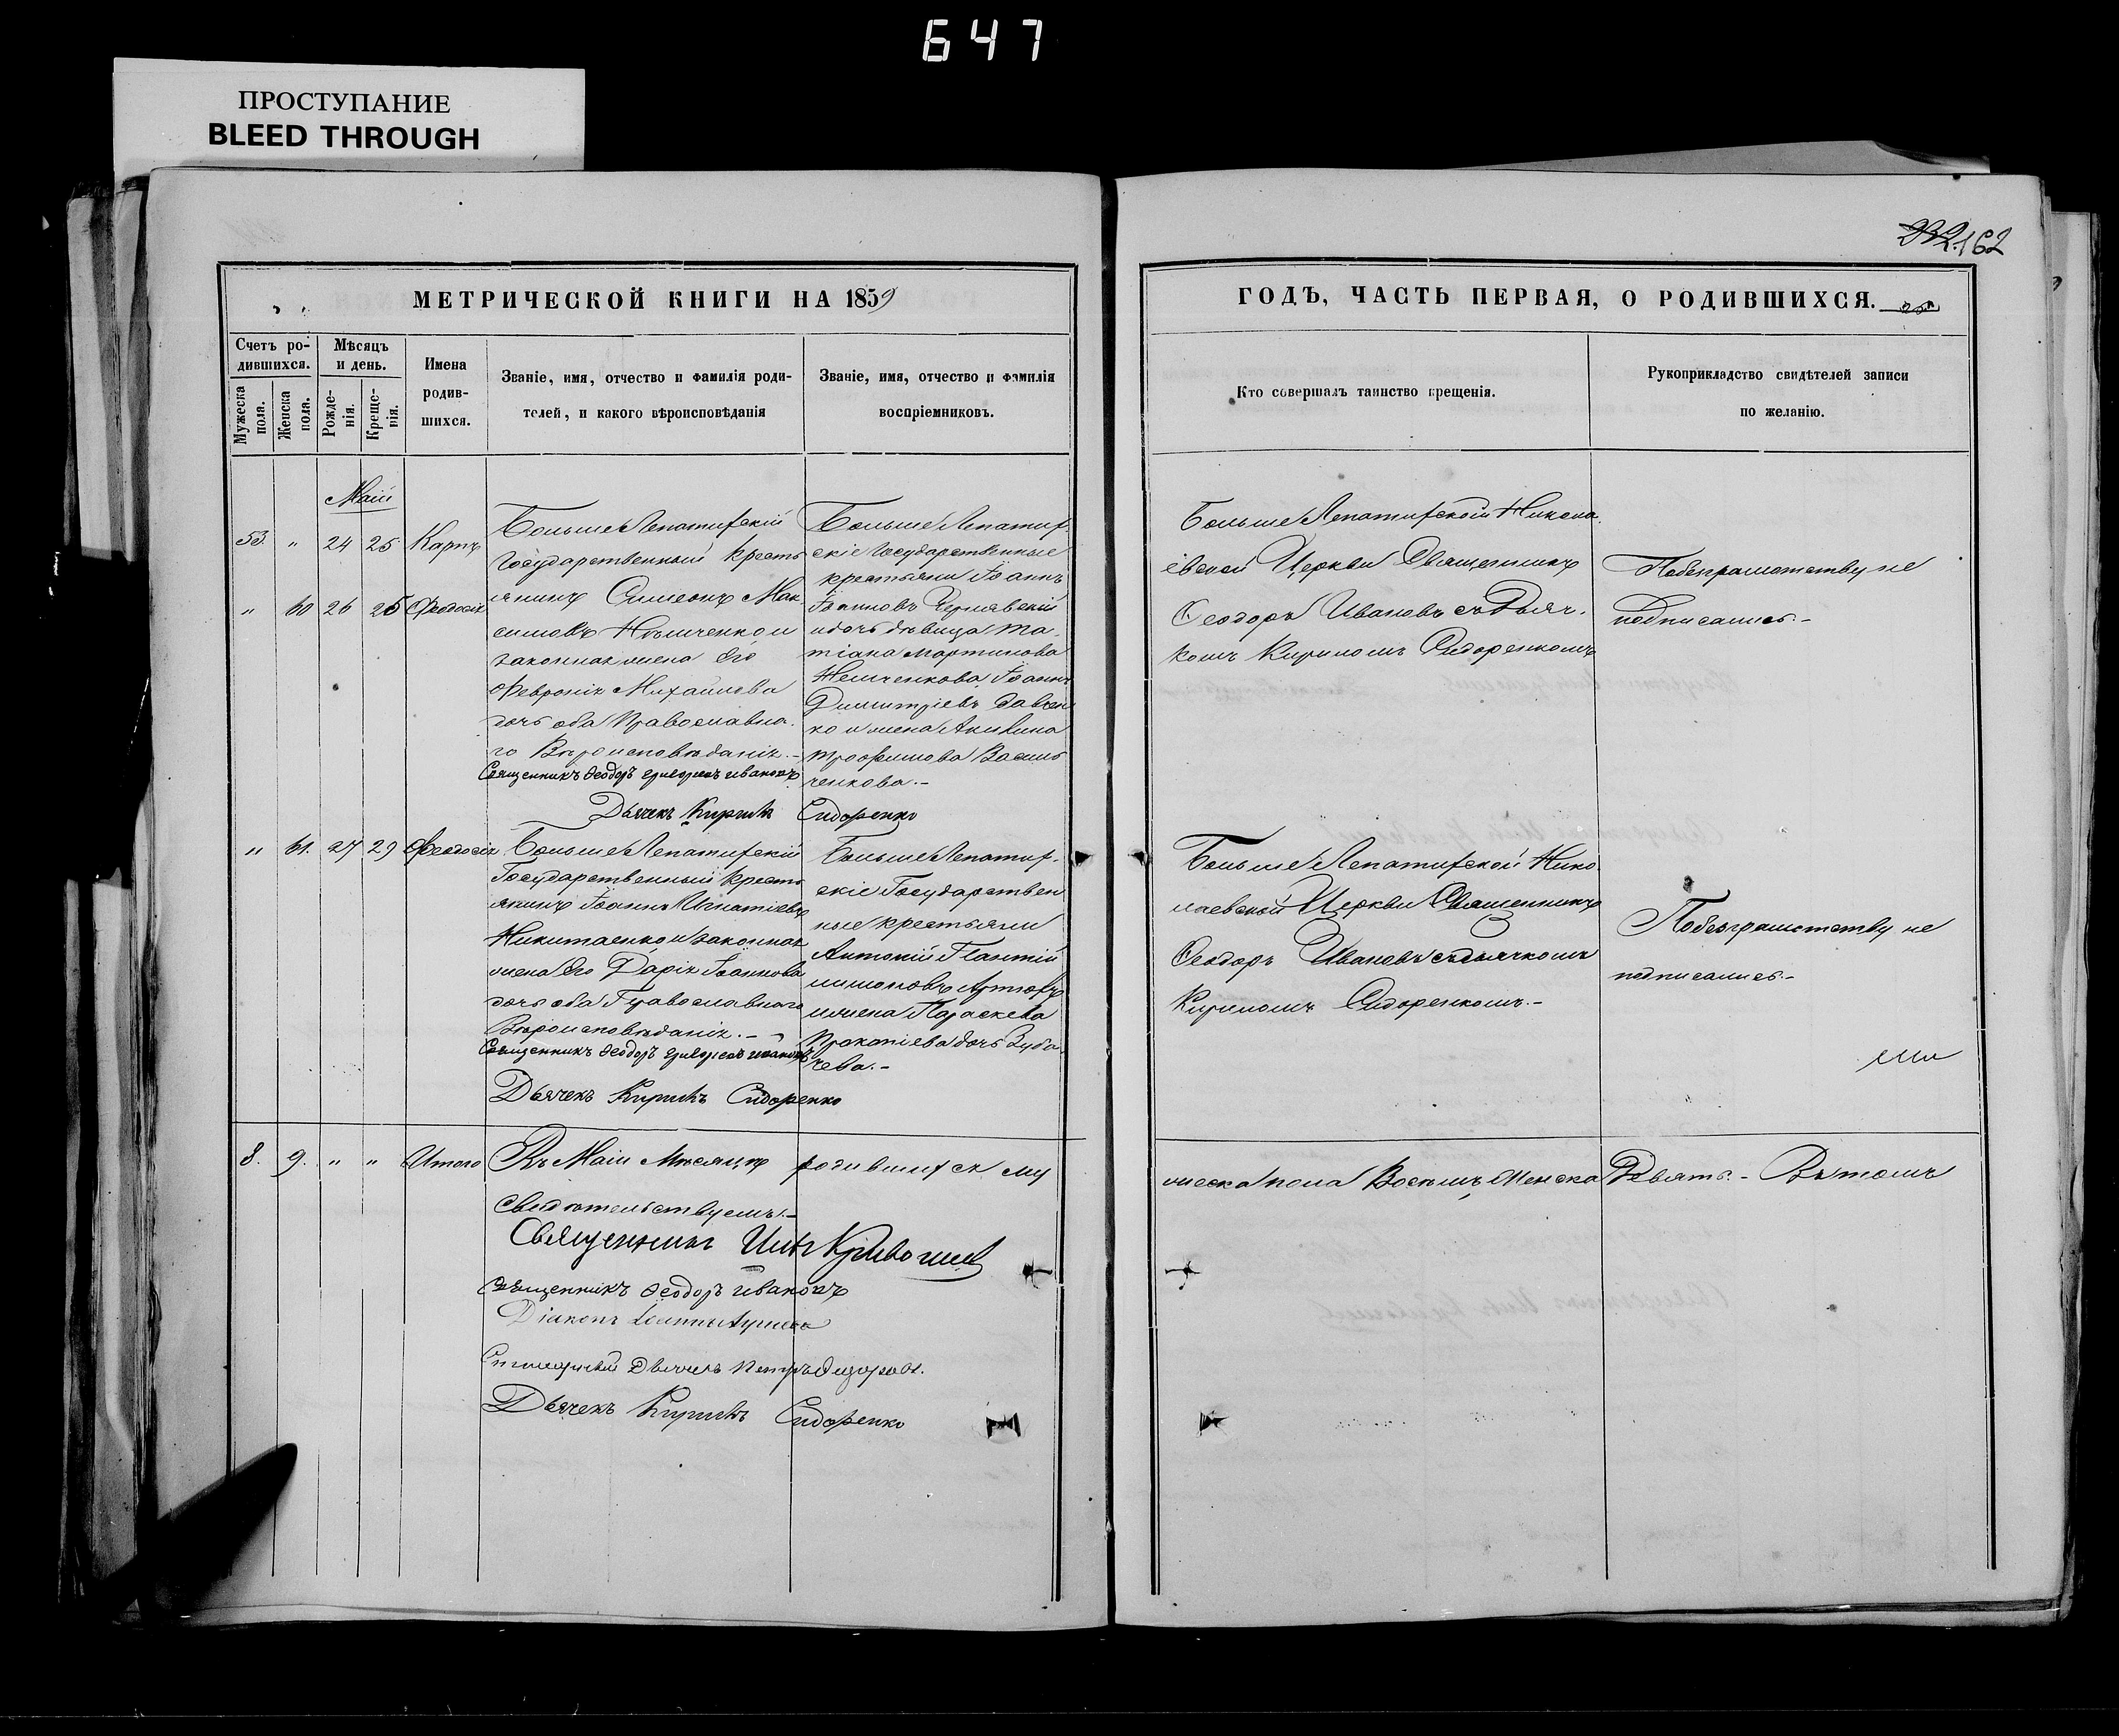 647
ПРОСТУПАНИЕ
BLEED THROUGH
162
МЕТРИЧЕСКОЙ КНИГИ НА 1859
ГОДЪ, ЧАСТЬ ПЕРВАЯ, О РОДИВШИХСЯ.
Счетъ ро-
дившихся.
Мужеска
пола.
Женска
пола.
Мѣсяцъ
и день.
Рожде-
нія.
Креще-
нія.
Имена
родив-
шихся.
Званіе, имя, отчество и фамилія роди-
телей, и какого вѣроисповѣданія
Званіе, имя, отчество и фамилія
воспріемниковъ.
Кто совершалъ таинство крещенія.
Рукоприкладство свидѣтелей записи
по желанію.
Маій
53. " 24 25 Карпъ
" 60 26 26 Феодосія
БольшеЛепатихскій
Государственный кресть
янинъ Симеонъ Мак
симовъ Нѣмченко и
законная жена Его
Феврония Михайлова
дочь оба Православна
го Вѣроисповѣданія.-
Священникъ Ѳеодоръ Григорьевъ Ивановъ
Дьячекъ Кирилъ Сидоренко
БольшеЛепатих-
скіе Государственные
крестьяни Іоаннъ
Іоанновъ Чернявскій
и дочь дѣвица Та-
тіана Мартинова
Немченкова, Іоаннъ
Димитріевъ
ко и жена Акилина
Трофимова Василь
ченкова.-
БольшеЛепатихской Никола
евской Церкви Священникъ
Ѳеодоръ Ивановъ съ Дьяч-
комъ Кириломъ Сидоренкомъ
Побезграмотству не
подписались.-
" 61. 27 29 Феодосія
БольшеЛепатихскій
Государственный кресть
янинъ Іоаннъ Игнатіевъ
Никитаенко и законная
жена Его Дарія Іоаннова
дочь оба Православнаго
Вѣроисповѣданія.-
Священникъ Ѳеодоръ Григорьевъ Ивановъ
Дьячекъ Кирилъ Сидоренко
БольшеЛепатих-
скіе Государствен
ные крестьяни
Антоній Пантій
лимоновъ Артюхъ
и жена Параскева
Прокопіева дочь Зуба
чева.-
БольшеЛепатихской Нико
лаевской Церкви Священникъ
Ѳеодоръ Ивановъ съ дьячкомъ
Кириломъ Сидоренкомъ.-
Побезграмотству не
подписались.-
8. 9. " " Итого Въ Маіи Мѣсяцѣ родившихся му
жеска пола Восемъ, Женска Девять.- Вътомъ
Свидѣтельствуемъ:-
Священникъ
Священникъ Ѳеодоръ Ивановъ
Діаконъ Іоаннъ
Дьячекъ Петръ
Дьячекъ Кирилъ Сидоренко